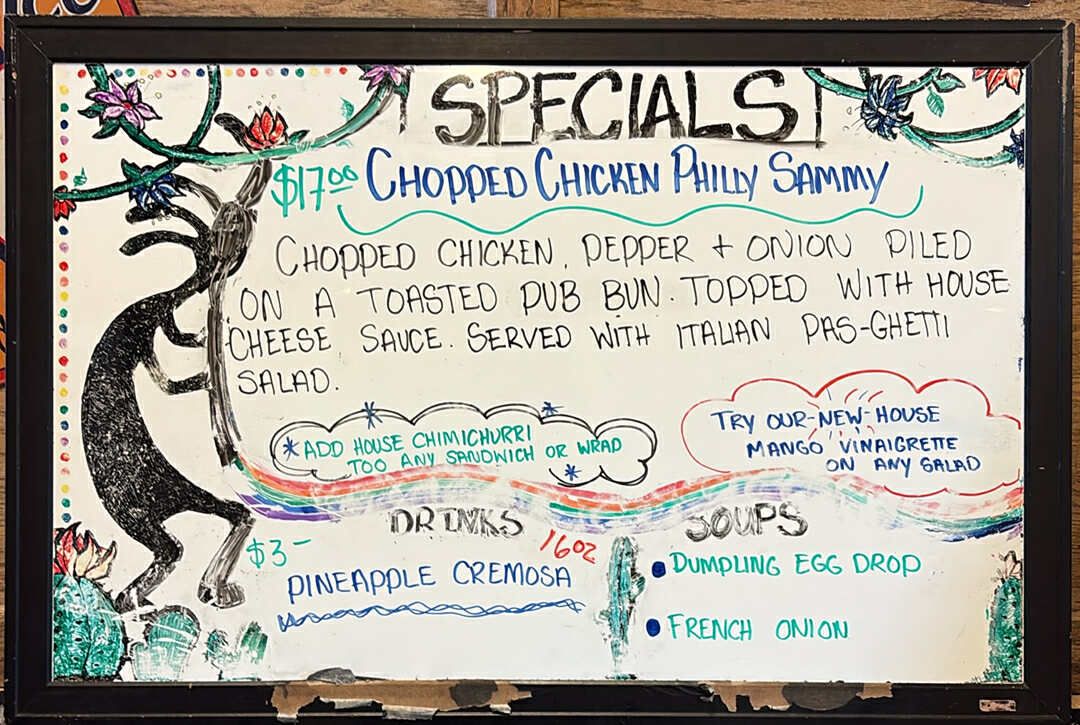 SPECIALS
$17.00 CHOPPED CHICKEN PHILLY SAMMY
CHOPPED CHICKEN, PEPPER + ONION PILED
ON A TOASTED PUB BUN. TOPPED WITH HOUSE
CHEESE SAUCE. SERVED WITH ITALIAN PAS-GHETTI
SALAD.
*ADD HOUSE CHIMICHURRI
TOO ANY SANDWICH OR WRAP
TRY OUR-NEW-HOUSE
MANGO VINAIGRETTE
ON ANY SALAD
DRINKS
$3- 16OZ
PINEAPPLE CREMOSA
SOUPS
• DUMPLING EGG DROP
• FRENCH ONION